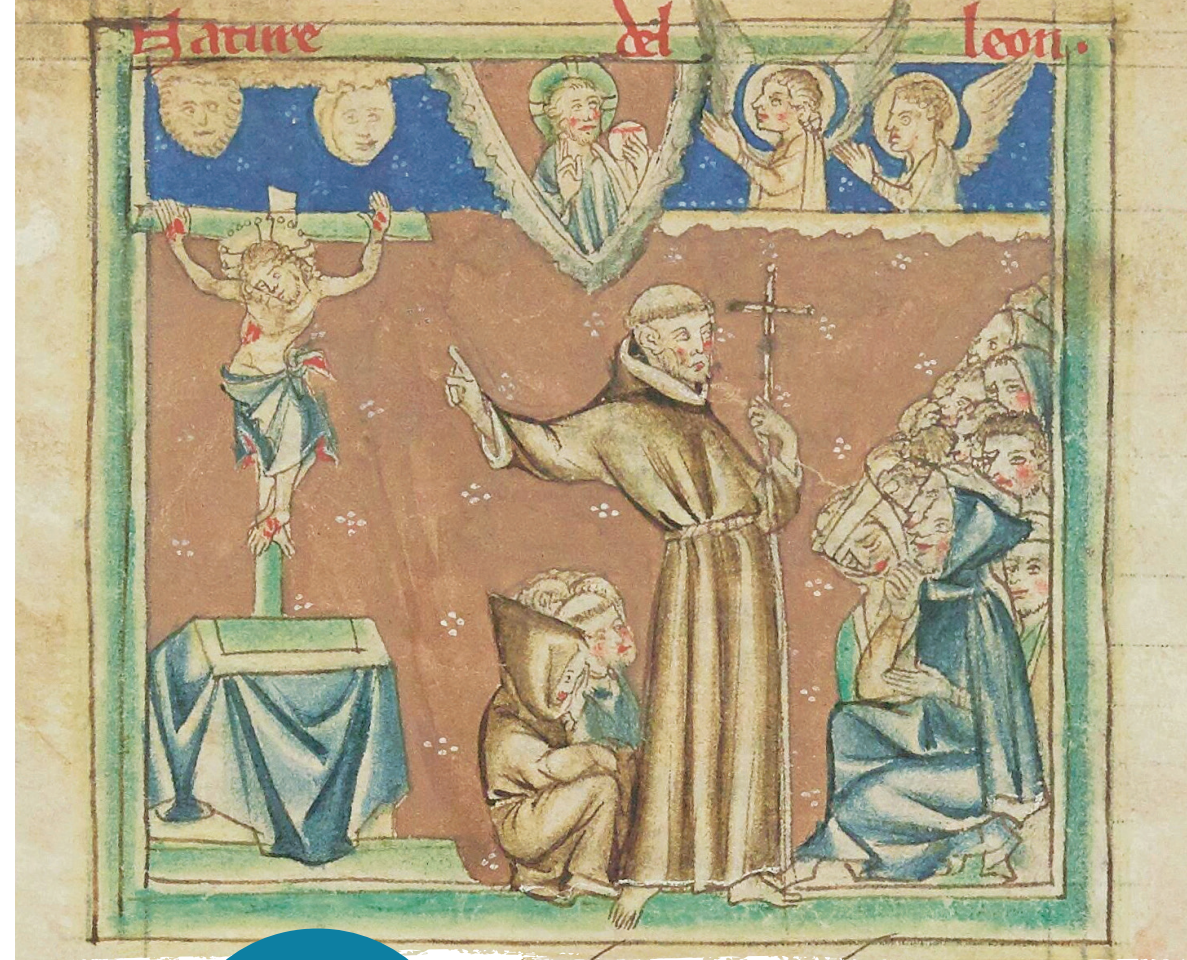 Nature del leon.